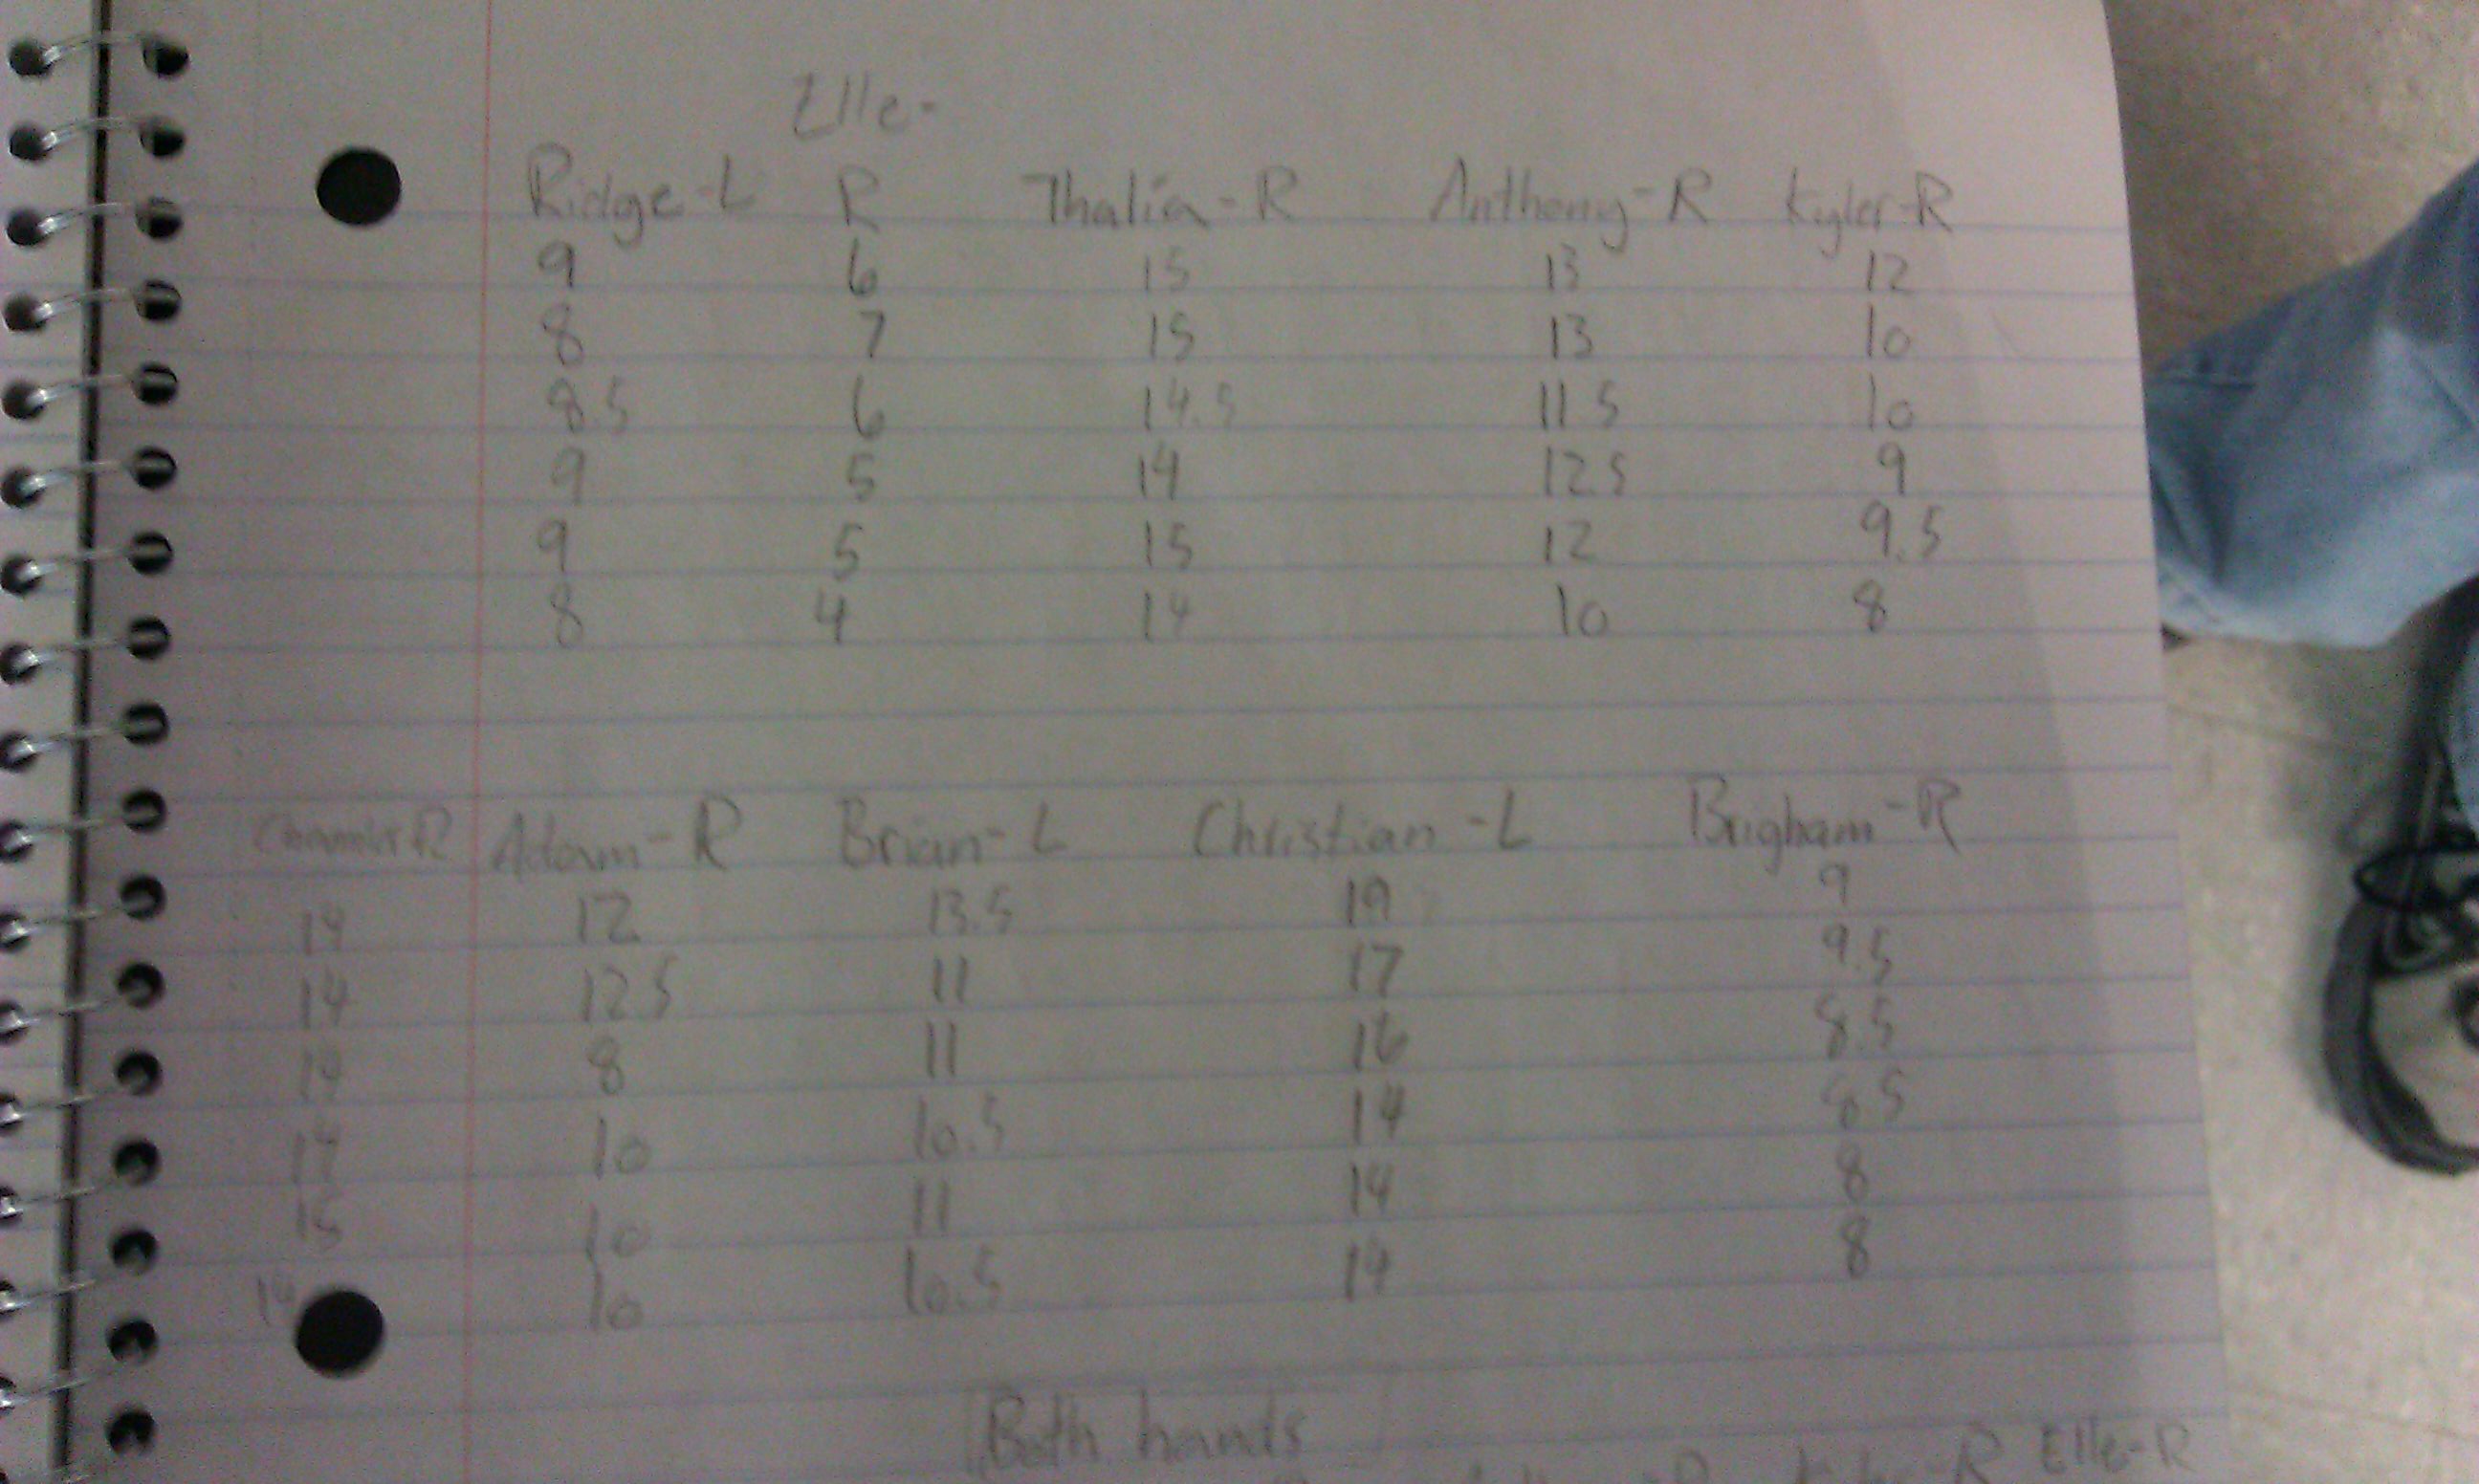 Elle-
Ridge-L R Thalia-R Anthony-R Kyler-R
9 6 15 13 12
8 7 15 13 10
8.5 6 14.5 11.5 10
9 5 14 12.5 9
9 5 15 12 9.5
8 4 14 10 8
Adam-R Brian-L Christian-L Brigham-R
14 12 13.5 19 9
14 12.5 11 17 9.5
14 8 11 16 8.5
14 10 10.5 14 8.5
15 10 11 14 8
14 10 10.5 14 8
Both hands
Kyler-R Elle-R